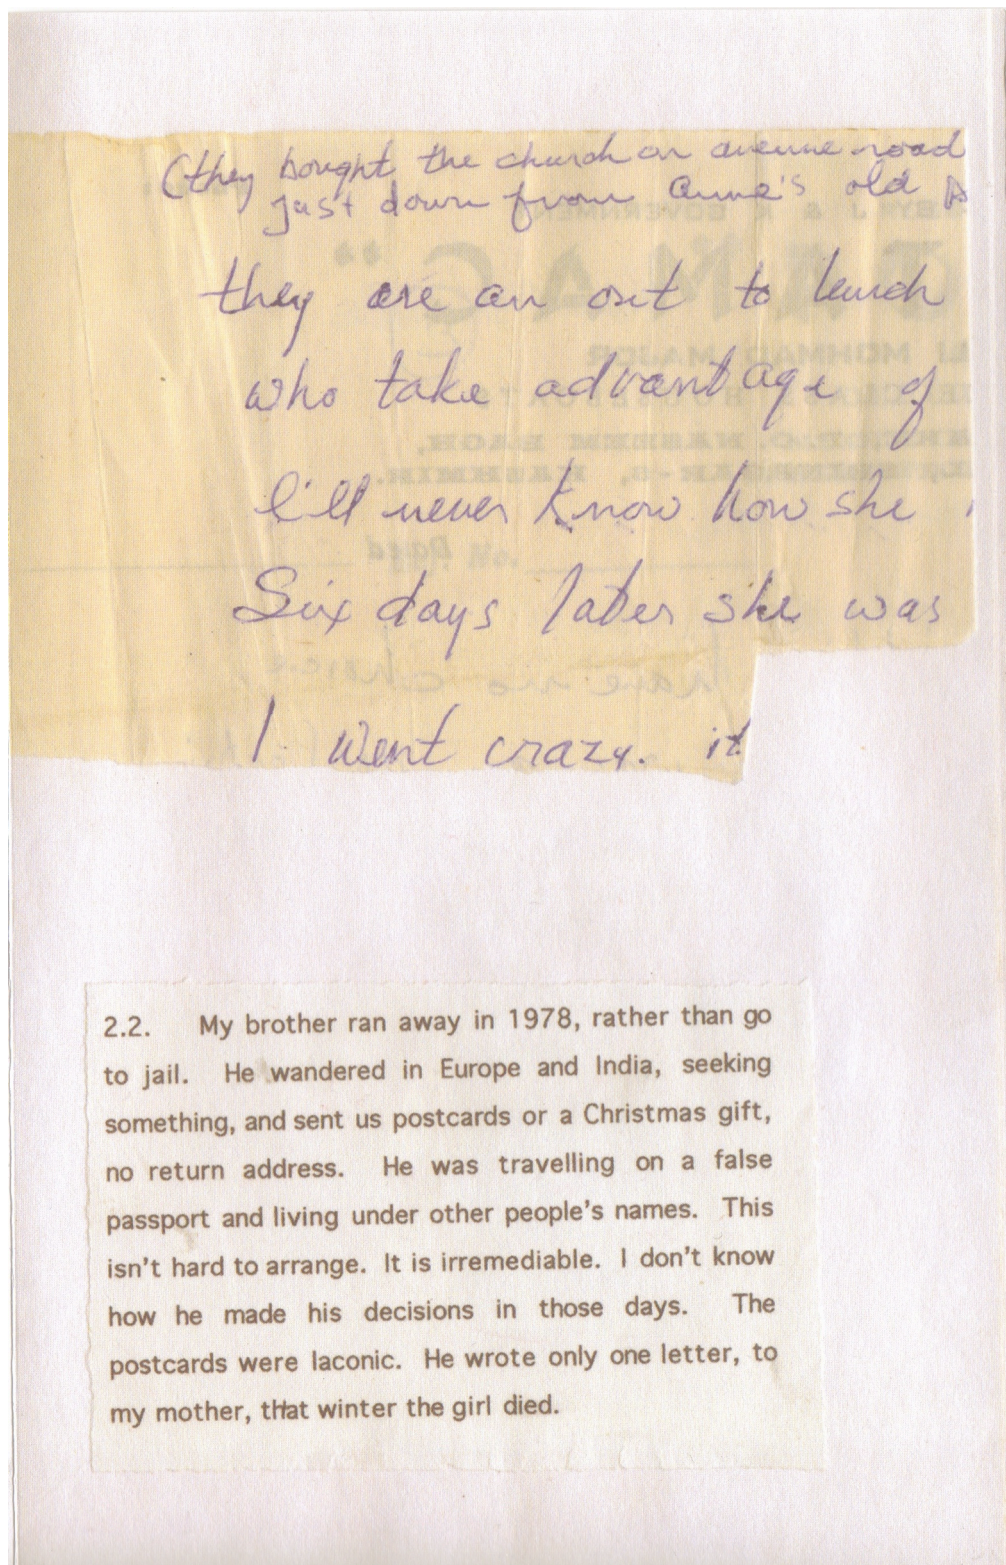 (they bought the church on avenue road
just down from anne's old
they are an out to lunch
who take advantage of
I'll never know how she
Six days later she was
I went crazy. it
2.2. My brother ran away in 1978, rather than go
to jail. He wandered in Europe and India, seeking
something, and sent us postcards or a Christmas gift,
no return address. He was travelling on a false
passport and living under other people's names. This
isn't hard to arrange. It is irremediable. I don't know
how he made his decisions in those days. The
postcards were laconic. He wrote only one letter, to
my mother, that winter the girl died.